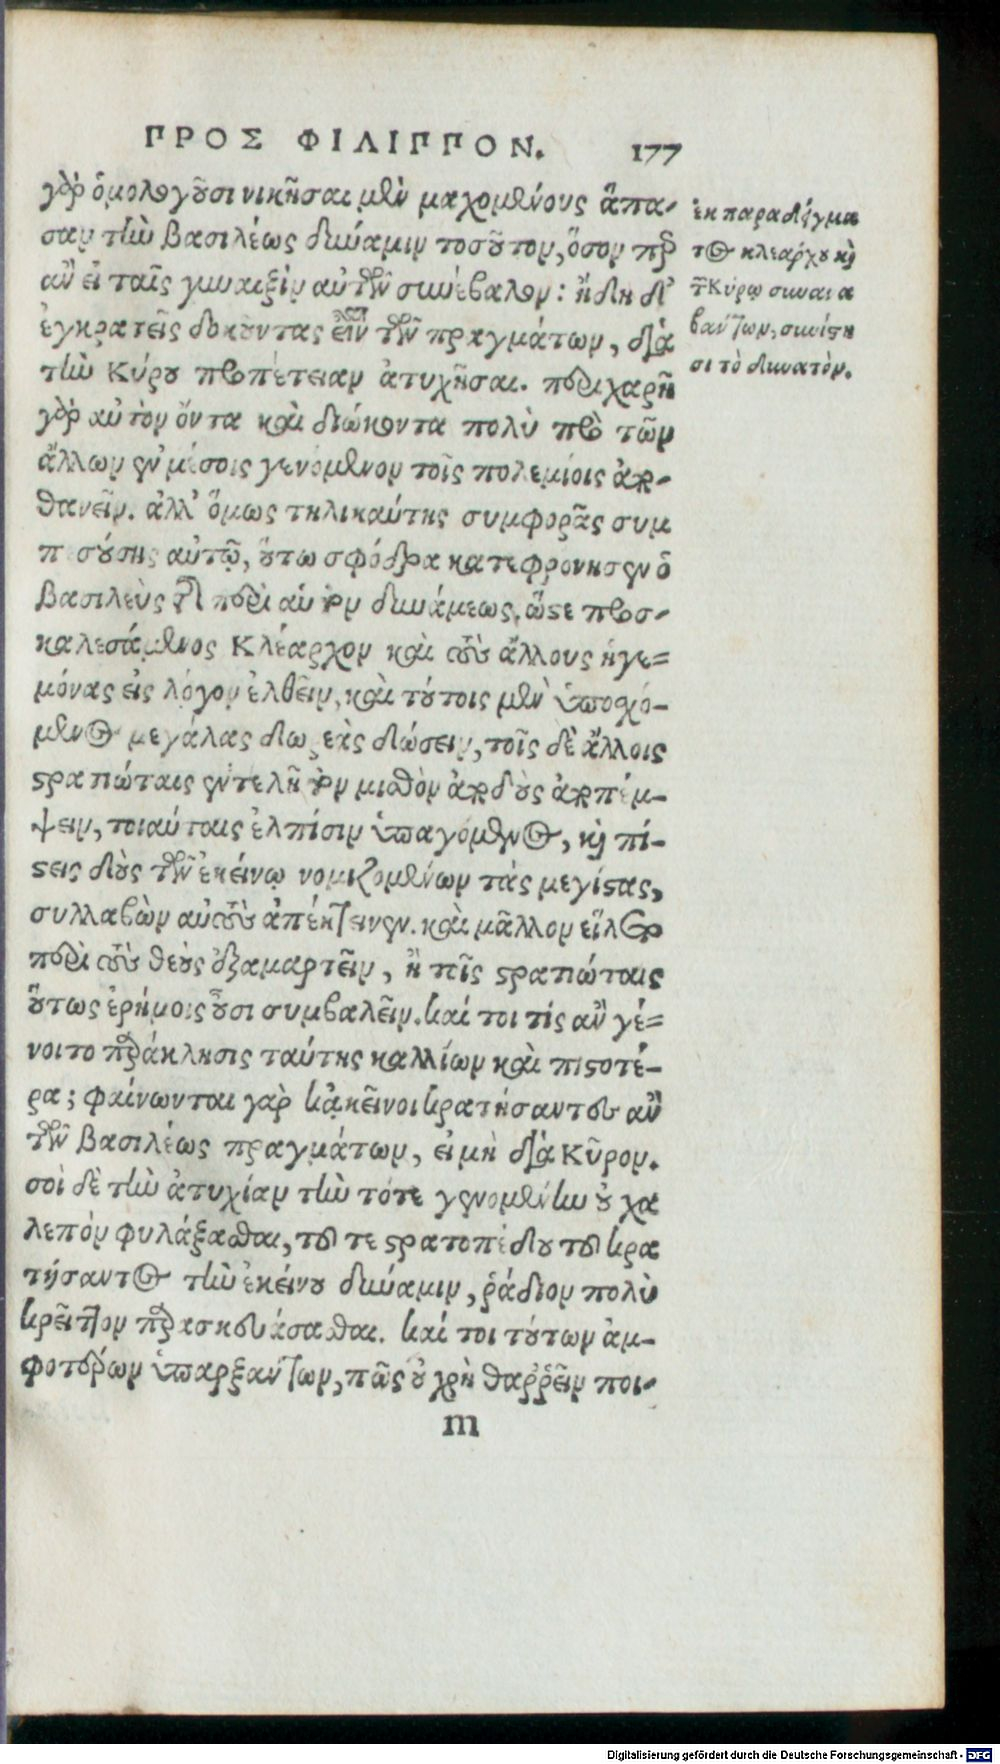 ΠΡΟΣ ΦΙΛΙΠΠΟΝ. 177
γὰρ ὁμολογοῦσι νικῆσαι μὲν μαχομένους ἅπα-
σαν τὴν βασιλέως δύναμιν τοσοῦτον, ὅσον περ
ἂν εἰ ταῖς γυναιξὶν αὐτῶν συνέβαλον: ἤδη δ'
ἐγκρατεῖς δοκοῦντας εἶναι τῶν πραγμάτων, διὰ
τὴν Κύρου προπέτειαν ἀτυχῆσαι. περιχαρῆ
γὰρ αὐτὸν ὄντα καὶ διώκοντα πολὺ πρὸ τῶν
ἄλλων ἐν μέσοις γενόμενον τοῖς πολεμίοις ἀπο-
θανεῖν. ἀλλ' ὅμως τηλικαύτης συμφορᾶς συμ
πεσούσης αὐτῷ, οὕτω σφόδρα κατεφρόνησεν ὁ
βασιλεὺς τῆς περὶ αὑτὸν δυνάμεως, ὥστε προσ-
καλεσάμενος Κλέαρχον καὶ τοὺς ἄλλους ἡγε=
μόνας εἰς λόγον ἐλθεῖν, καὶ τούτοις μὲν ὑποσχό-
μενος μεγάλας δωρεὰς δώσειν, τοῖς δὲ ἄλλοις
στρατιώταις ἐντελῆ τὸν μισθὸν ἀποδοὺς ἀποπέμ-
ψειν, τοιαύταις ἐλπίσιν ὑπαγόμενος, καὶ πί-
στεις δοὺς τῶν ἐκείνῳ νομιζομένων τὰς μεγίστας,
συλλαβὼν αὐτοὺς ἀπέκτεινεν. καὶ μᾶλλον εἵλετο
περὶ τοὺς θεοὺς ἐξαμαρτεῖν, ἢ τοῖς στρατιώταις
οὕτως ἐρήμοις οὖσι συμβαλεῖν. καί τοι τίς ἂν γέ=
νοιτο παράκλησις ταύτης καλλίων καὶ πιστοτέ-
ρα; φαίνονται γὰρ κἀκεῖνοι κρατήσαντες ἂν
τῶν βασιλέως πραγμάτων, εἰ μὴ διὰ Κῦρον.
σοὶ δὲ τὴν ἀτυχίαν τὴν τότε γενομένην οὐ χα
λεπὸν φυλάξασθαι, τοῦ τε στρατοπέδου τοῦ κρα
τήσαντος τὴν ἐκείνου δύναμιν, ῥᾴδιον πολὺ
κρεῖττον παρασκευάσασθαι. καί τοι τούτων ἀμ-
φοτέρων ὑπαρξάντων, πῶς οὐ χρὴ θαῤῥεῖν ποι-
m
ἐκ παραδείγμα
τος κλεάρχου καὶ
τῶν Κύρῳ συνανα
βάντων, συνίστη
σι τὸ δυνατόν.
Digitalisierung gefördert durch die Deutsche Forschungsgemeinschaft - DFG